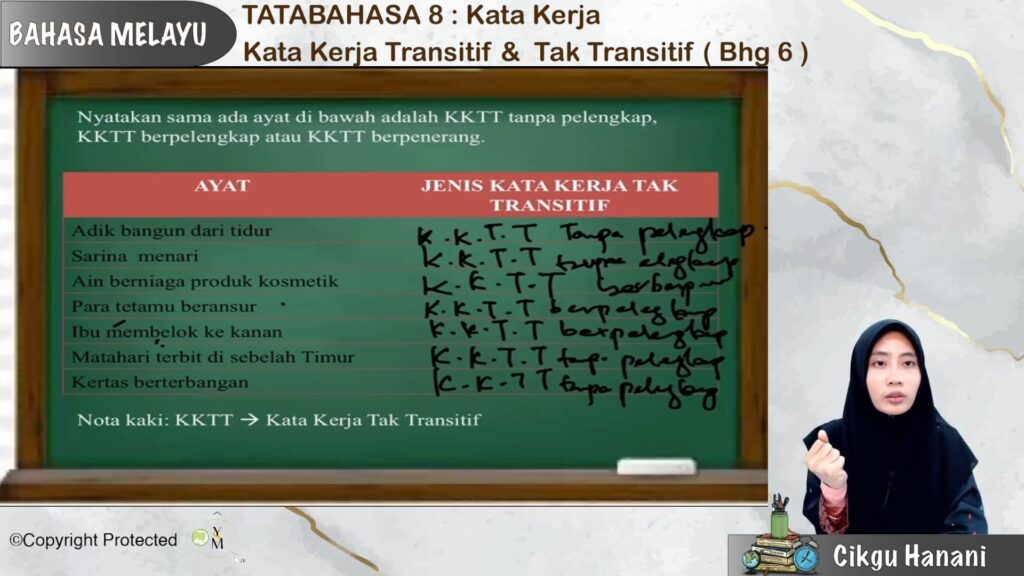 BAHASA MELAYU
TATABAHASA 8 : Kata Kerja
Kata Kerja Transitif & Tak Transitif ( Bhg 6 )
Nyatakan sama ada ayat di bawah adalah KKTT tanpa pelengkap,
KKTT berpelengkap atau KKTT berpenerang.
AYAT JENIS KATA KERJA TAK
TRANSITIF
Adik bangun dari tidur K.K.T.T Tanpa pelengkap.
Sarina menari K.K.T.T tanpa
Ain berniaga produk kosmetik K.K.T.T
Para tetamu beransur K.K.T.T berpelengkap
Ibu membelok ke kanan K.K.T.T berpelengkap
Matahari terbit di sebelah Timur K.K.T.T pelengkap
Kertas berterbangan K.K.T.T tanpa pelengkap
Nota kaki: KKTT → Kata Kerja Tak Transitif
©Copyright Protected
Y
M
Cikgu Hanani